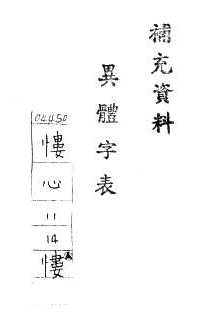 補充資料
異體字表
04450
慺
心
11
14
慺